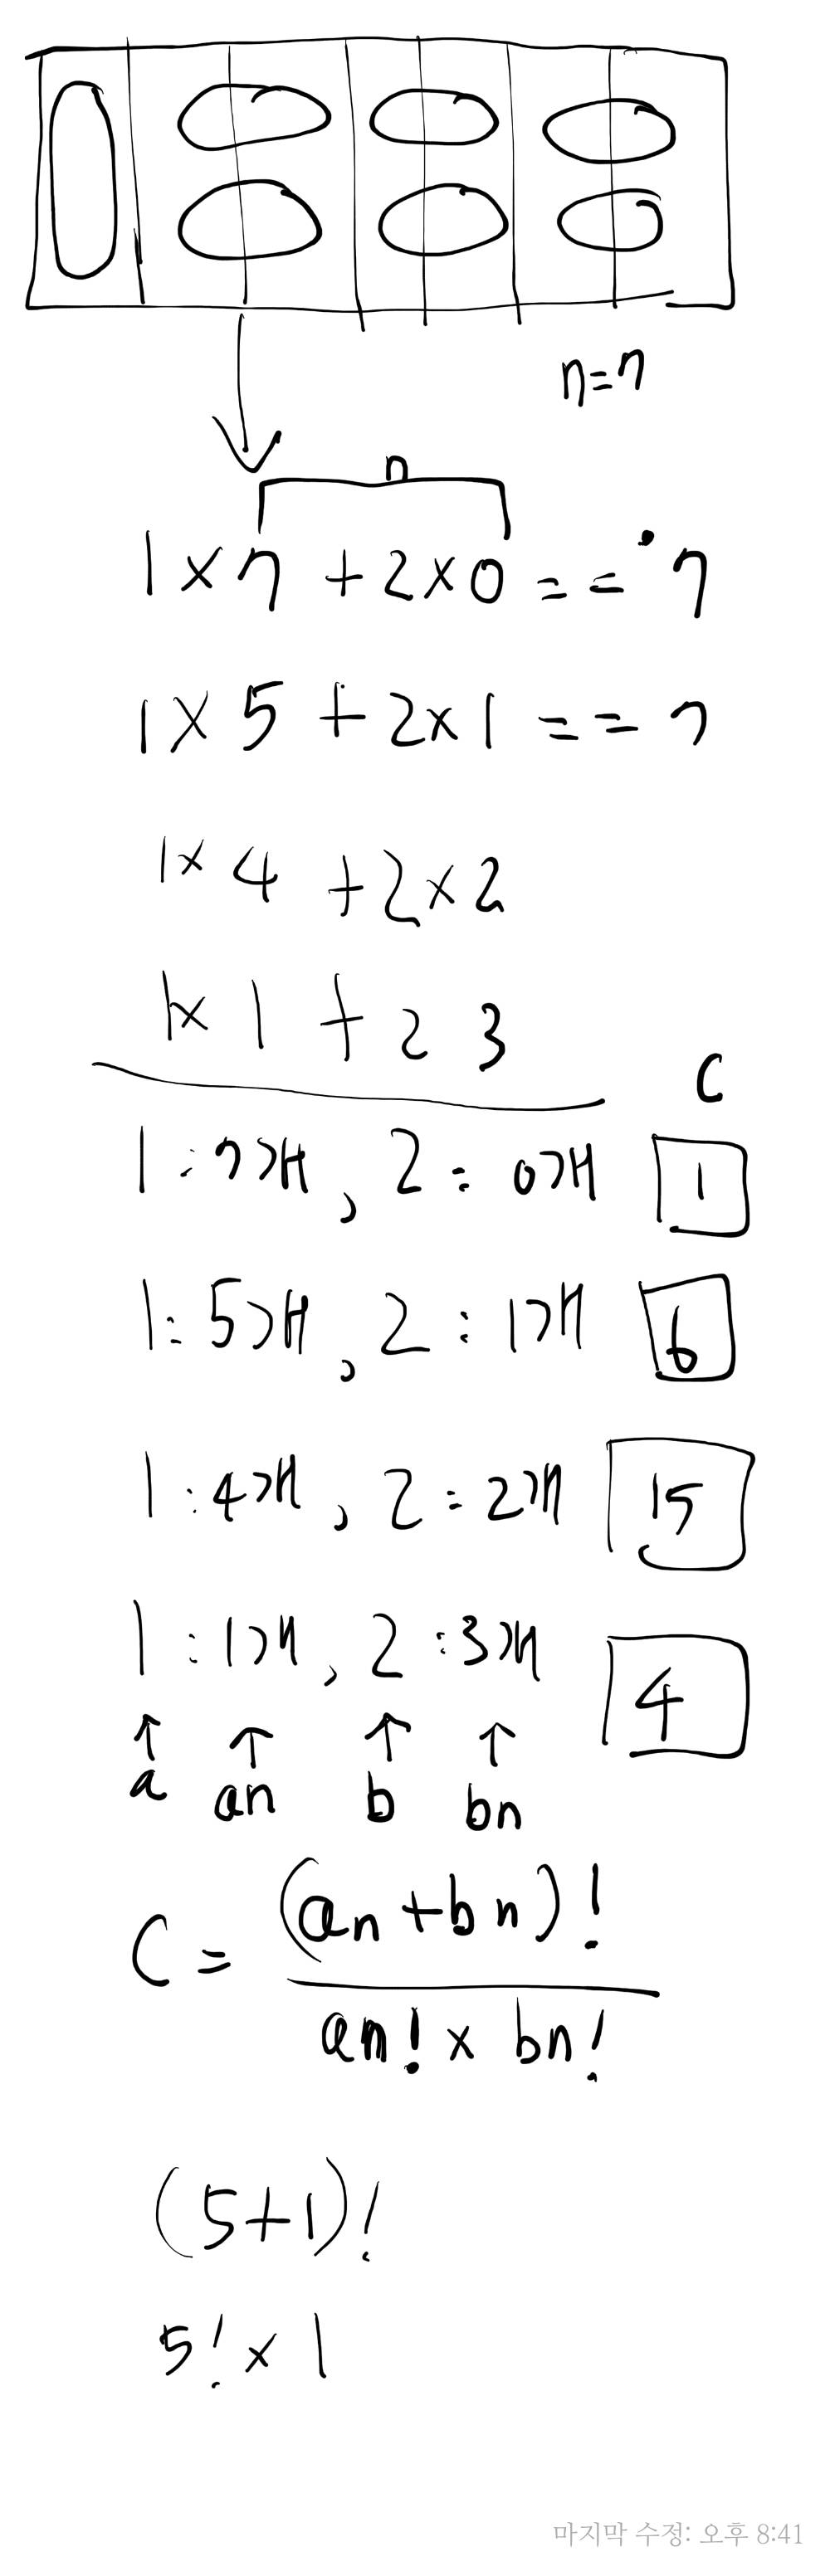 n=7
n
1×7+2×0==7
1×5+2×1==7
1×4+2×2
1×1+2 3
C
1:7개, 2:0개 1
1:5개, 2:1개 6
1:4개, 2:2개 15
1:1개, 2:3개 4
↑ ↑ ↑ ↑
a an b bn
C = (an+bn)!
an!× bn!
(5+1)!
5!×1
마지막 수정: 오후 8:41